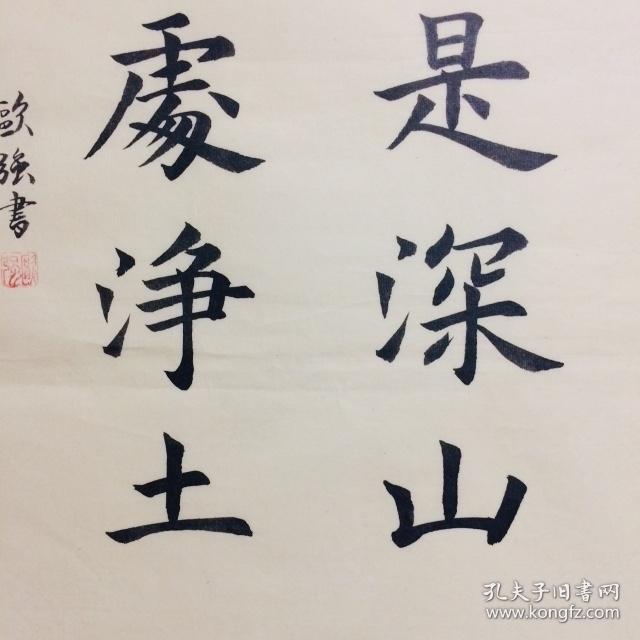 是深山
處淨土
歐強書
孔夫子旧書网
www.kongfz.com